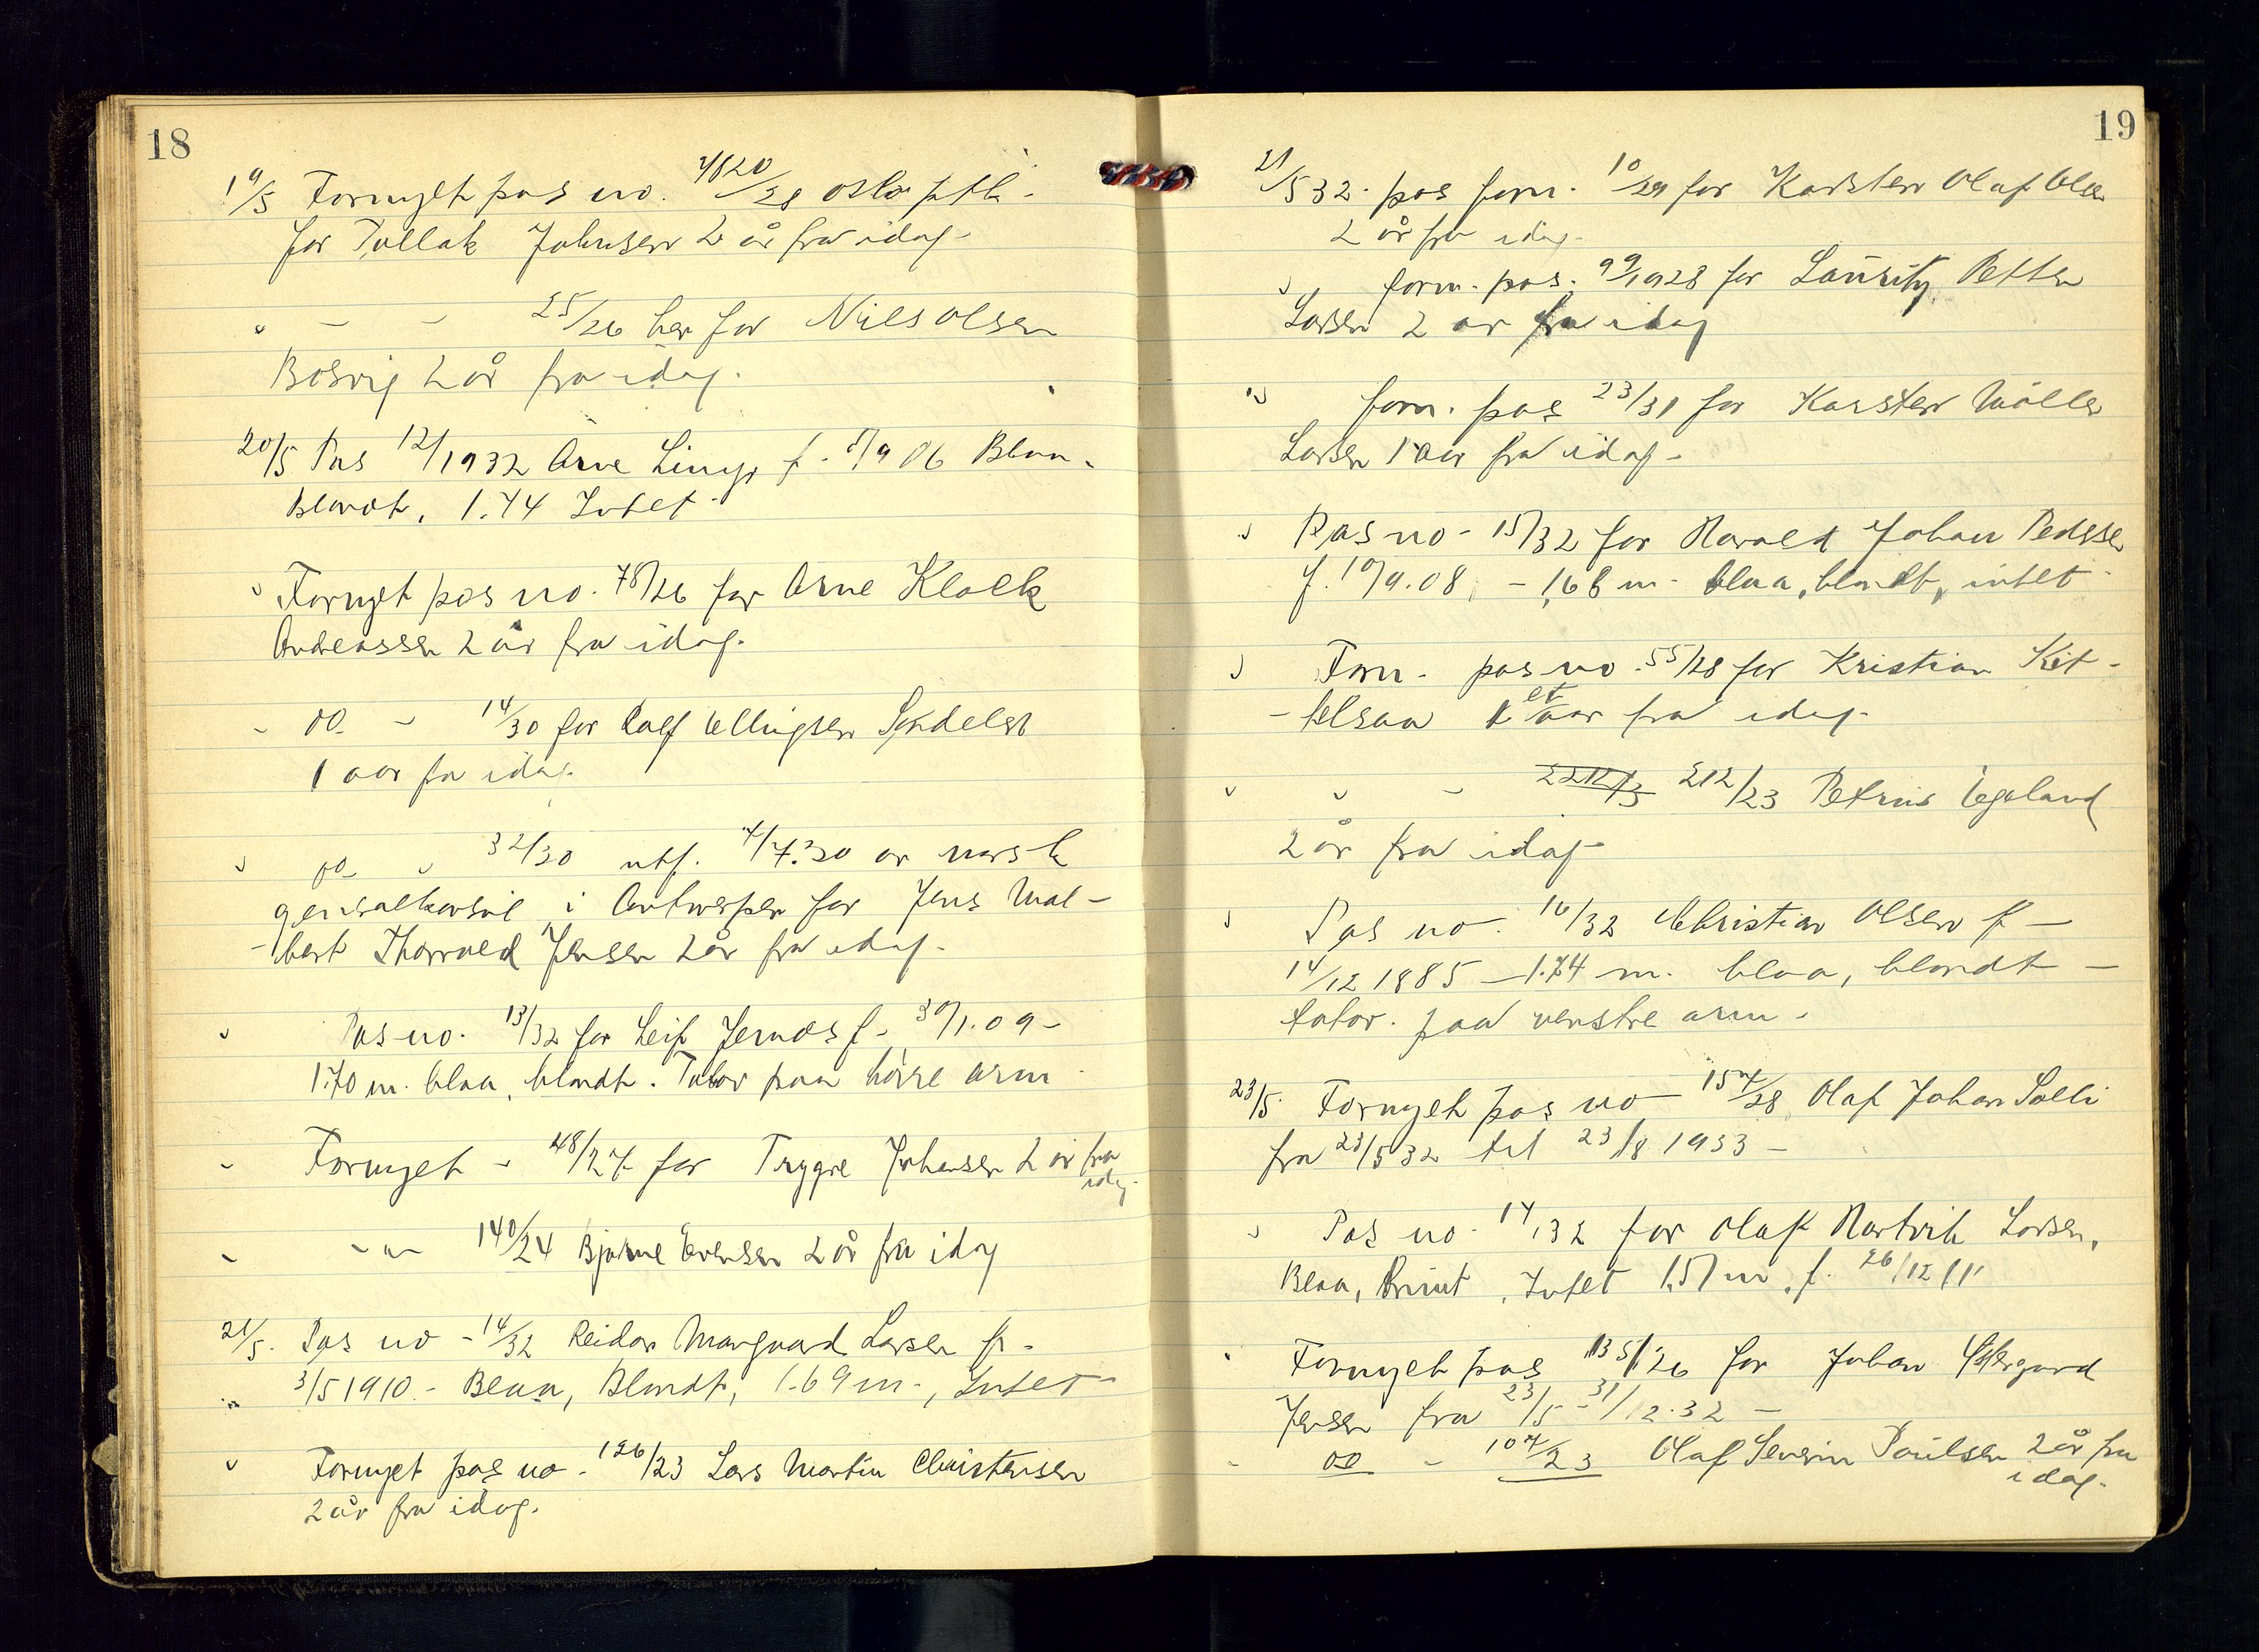 18
19/5 Fornyet pas no. 4820/28 Oslo ptk.
for Tollak Johnsen 2 år fra idag.
" - - 25/26 her for Nils Olsen
Bosvig 2 år fra idag.
20/5 Pas 12/1932 Arne f. 8/9 06 Blaa.
Blondt, 1.74 Intet
" Fornyet pas no. 78/26 for Arne Klock
Andreassen 2 år fra idag.
- do - 14/30 for Ellingsen
1 aar fra idag.
" do " 32/30 utf. 7/7.30 av norsk
generalkonsul i Antwerpen for Jens Wal-
-bert Thorvald Jensen 2 år fra idag.
" Pas no. 13/32 for Leif Jernæs f. 30/1.09-
1.70 m. blaa, blondt. Tatov. paa høire arm
- Fornyet - 48/27 for Trygve Johansen 2 år fra
idag.
- -"- 140/24 Bjarne Evensen 2 år fra idag
21/5. Pas no - 14/32 Reidar Margvard Larsen f.
" 3/5 1910. - Blaa, Blondt, 1.69 m., Intet -
" Fornyet pas no. 126/23 Lars Martin Christensen
2 år fra idag.
19
21/5 32. pas forn. 10/29 for Karsten Olaf Olsen
2 år fra idag.
" forn. pas. 99/1928 for Lauritz Petter
Larsen 2 år fra idag
" forn. pas 23/31 for Karsten Møller
Larsen 1 aar fra idag -
" Pas no - 15/32 for Harald Johan Pedersen
f. 10/9.08, - 1,68 m - blaa, blondt, intet -
" Forn. pas no. 55/28 for Kristian Kit-
-telsaa et aar fra idag -
" " - 2212/3 212/23 Petrus Egeland
2 år fra idag -
" Pas no. 16/32 Christian Olsen f -
14/12 1885 - 1.74 m. blaa, blondt -
tatov. paa venstre arm -
23/5. Fornyet pas no 157/28 Olaf Johan Solli
fra 23/5 32 til 23/8 1933 -
" Pas no - 17/32 for Olaf Hartvik Larsen,
Blaa, Brunt, Intet 1.57 m, f. 26/12 11
" Fornyet pas 135/26 for Johan
Jensen fra 23/5 - 31/12.32 -
- do - 107/23 Olaf Severin Poulsen 2 år fra
idag.